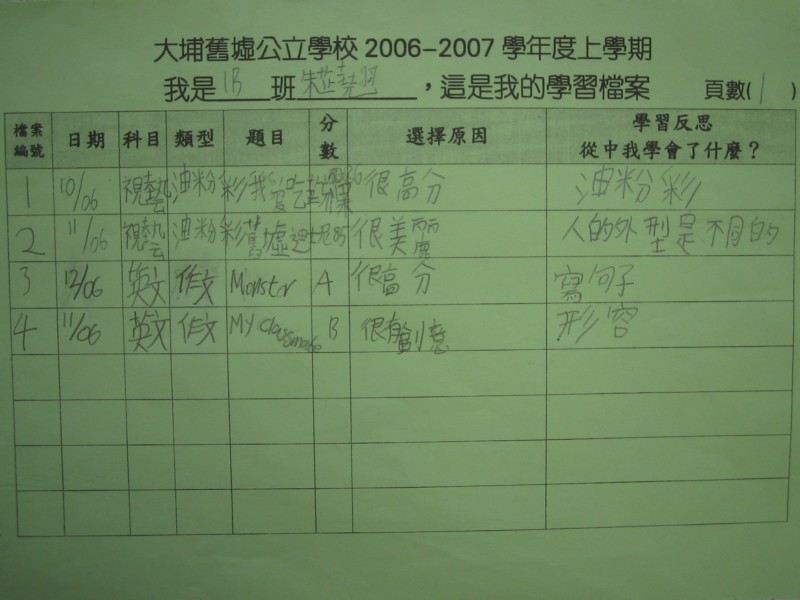 大埔舊墟公立學校 2006–2007 學年度上學期
我是 1B 班 朱芷 ,這是我的學習檔案 頁數( 1 )
檔案編號 日期 科目 類型 題目 分數 選擇原因 學習反思 從中我學會了什麼?
1 10/06 視藝 油粉彩 我 吃 果 很高分 油粉彩
2 11/06 視藝 油粉彩 舊墟 85 很美麗 人的外型是不同的
3 12/06 英文 作文 Monstr A 很高分 寫句子
4 11/06 英文 作文 My classmate B 很有創意 形容